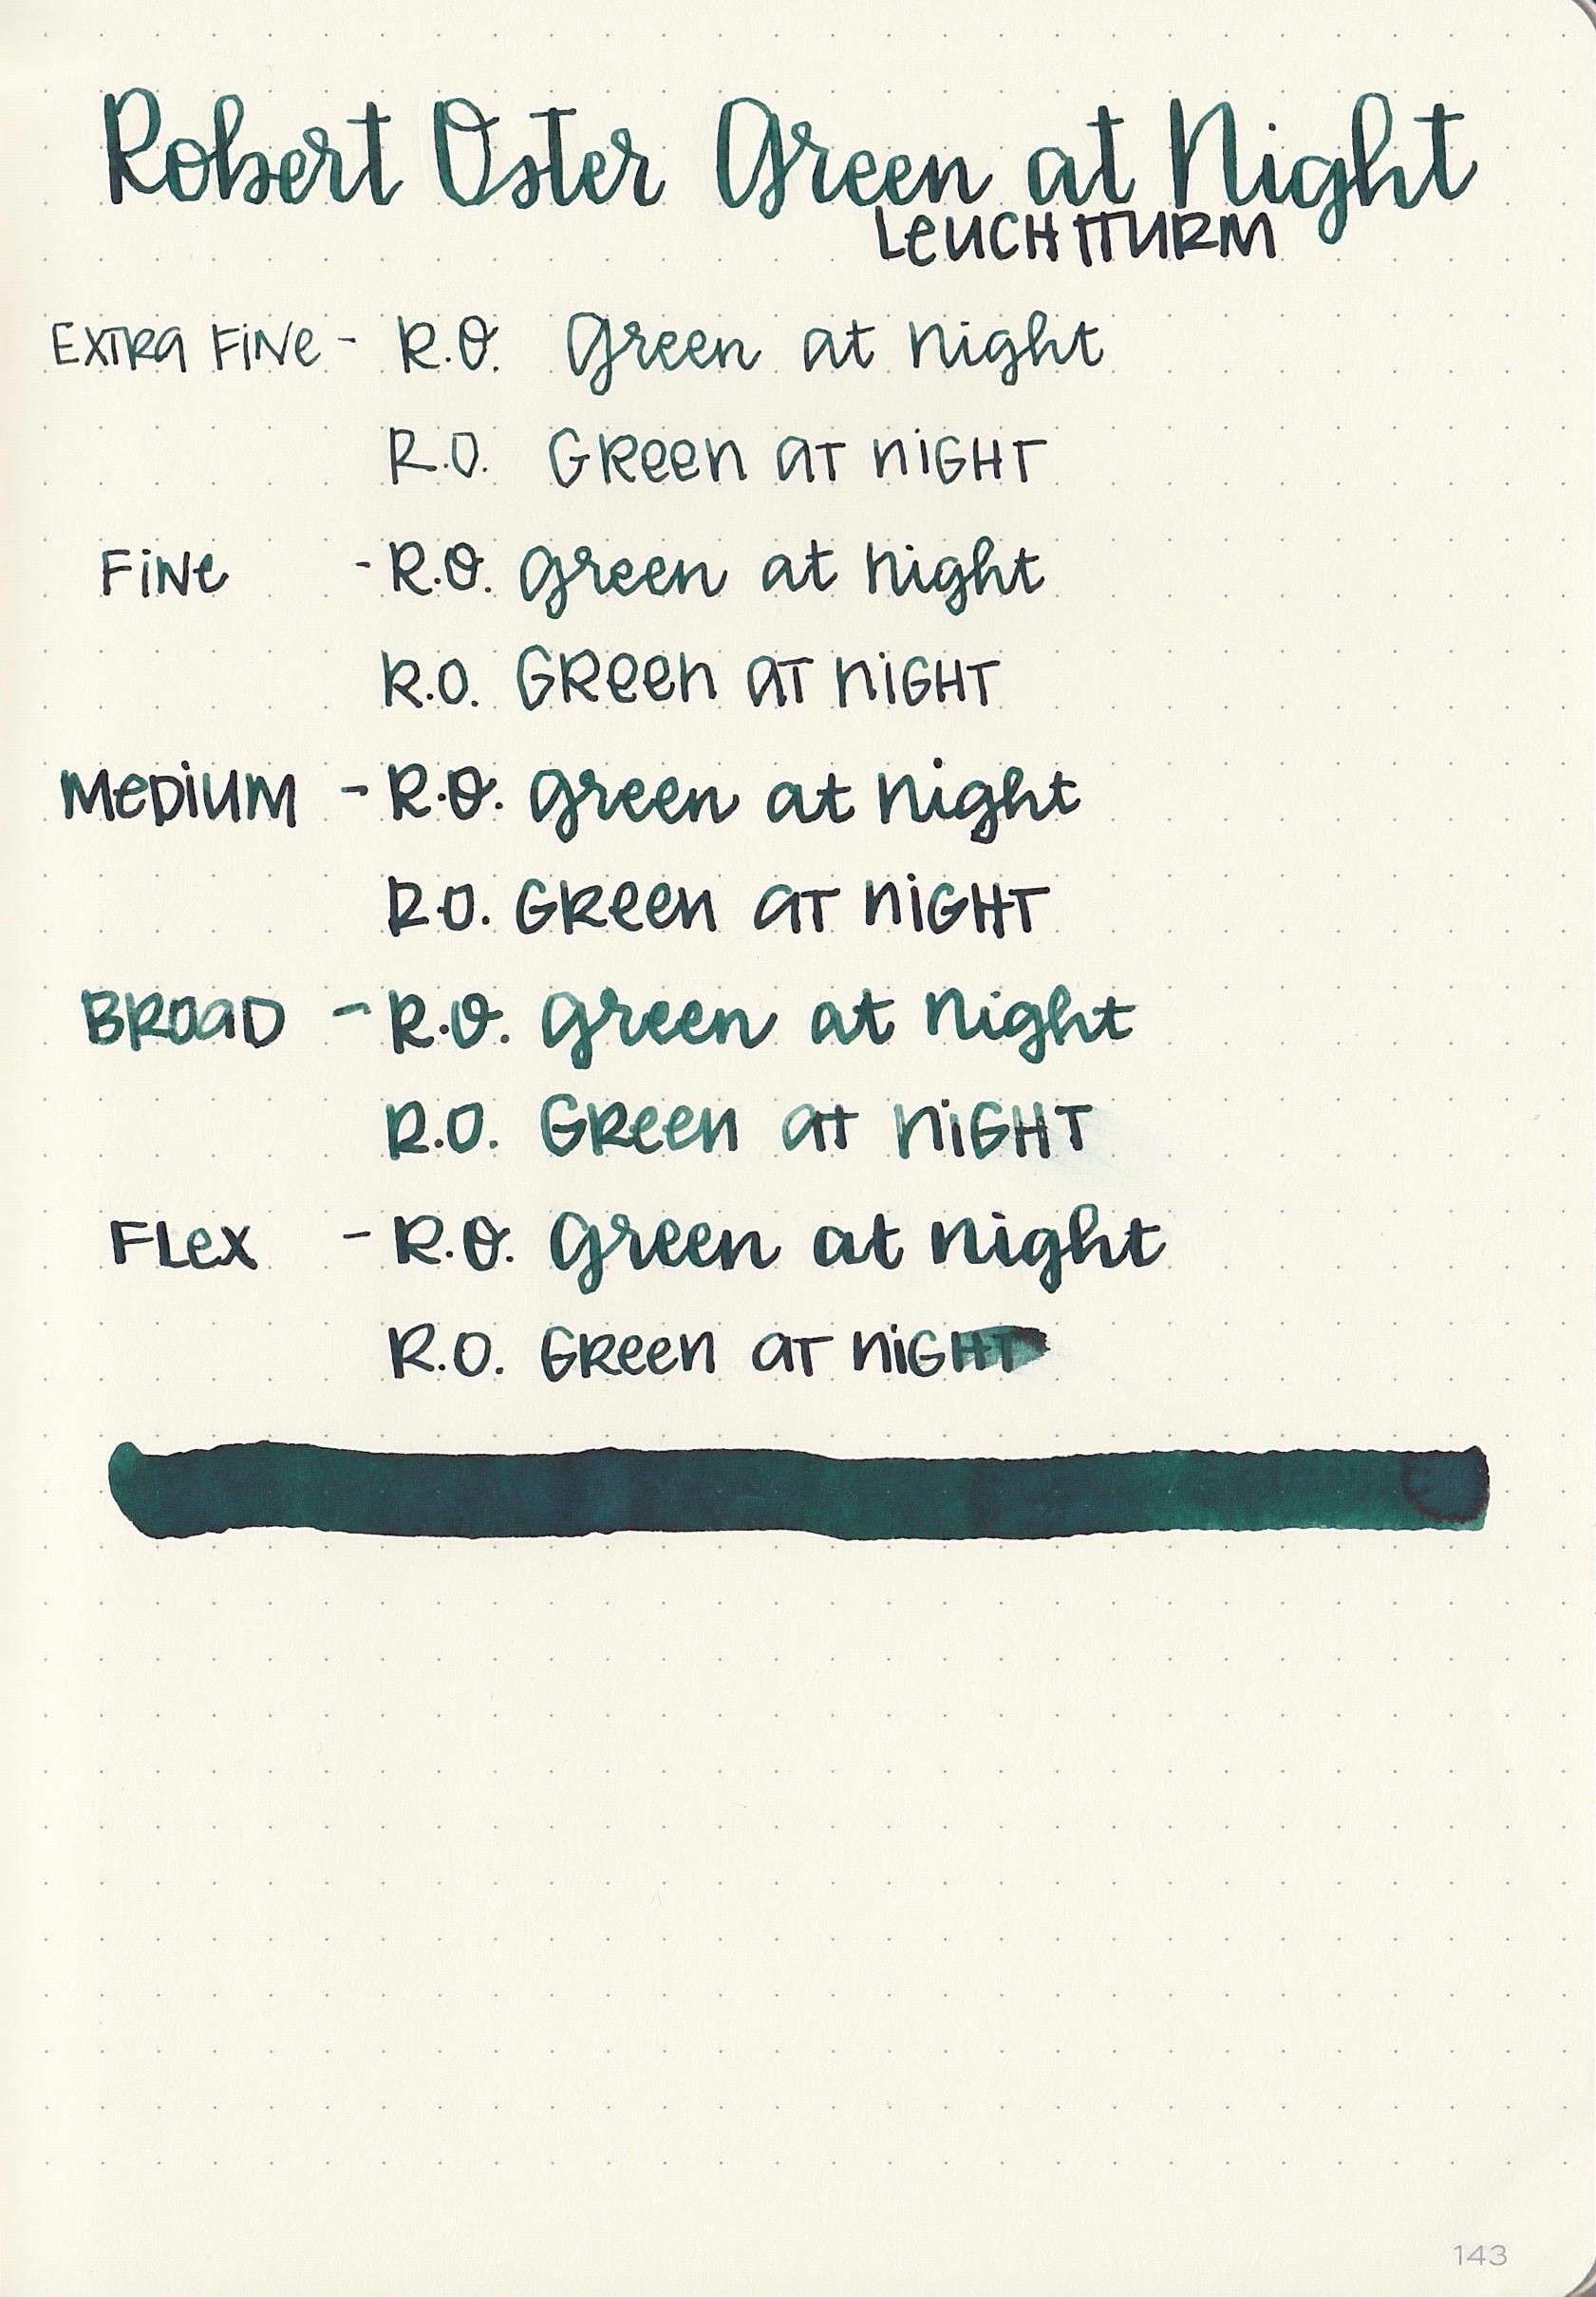 Robert Oster Green at Night
LeUCHTTURM
EXTRA FiNe - R.O. Green at night
R.O. GReen aT niGHT
FiNe - R.O. Green at night
R.O. GReen aT niGHT
MeDiUM - R.O. Green at night
R.O. GReen aT niGHT
BROaD - R.O. Green at night
R.O. GReen aT niGHT
FLex - R.O. Green at night
R.O. GReen aT niGHT
143